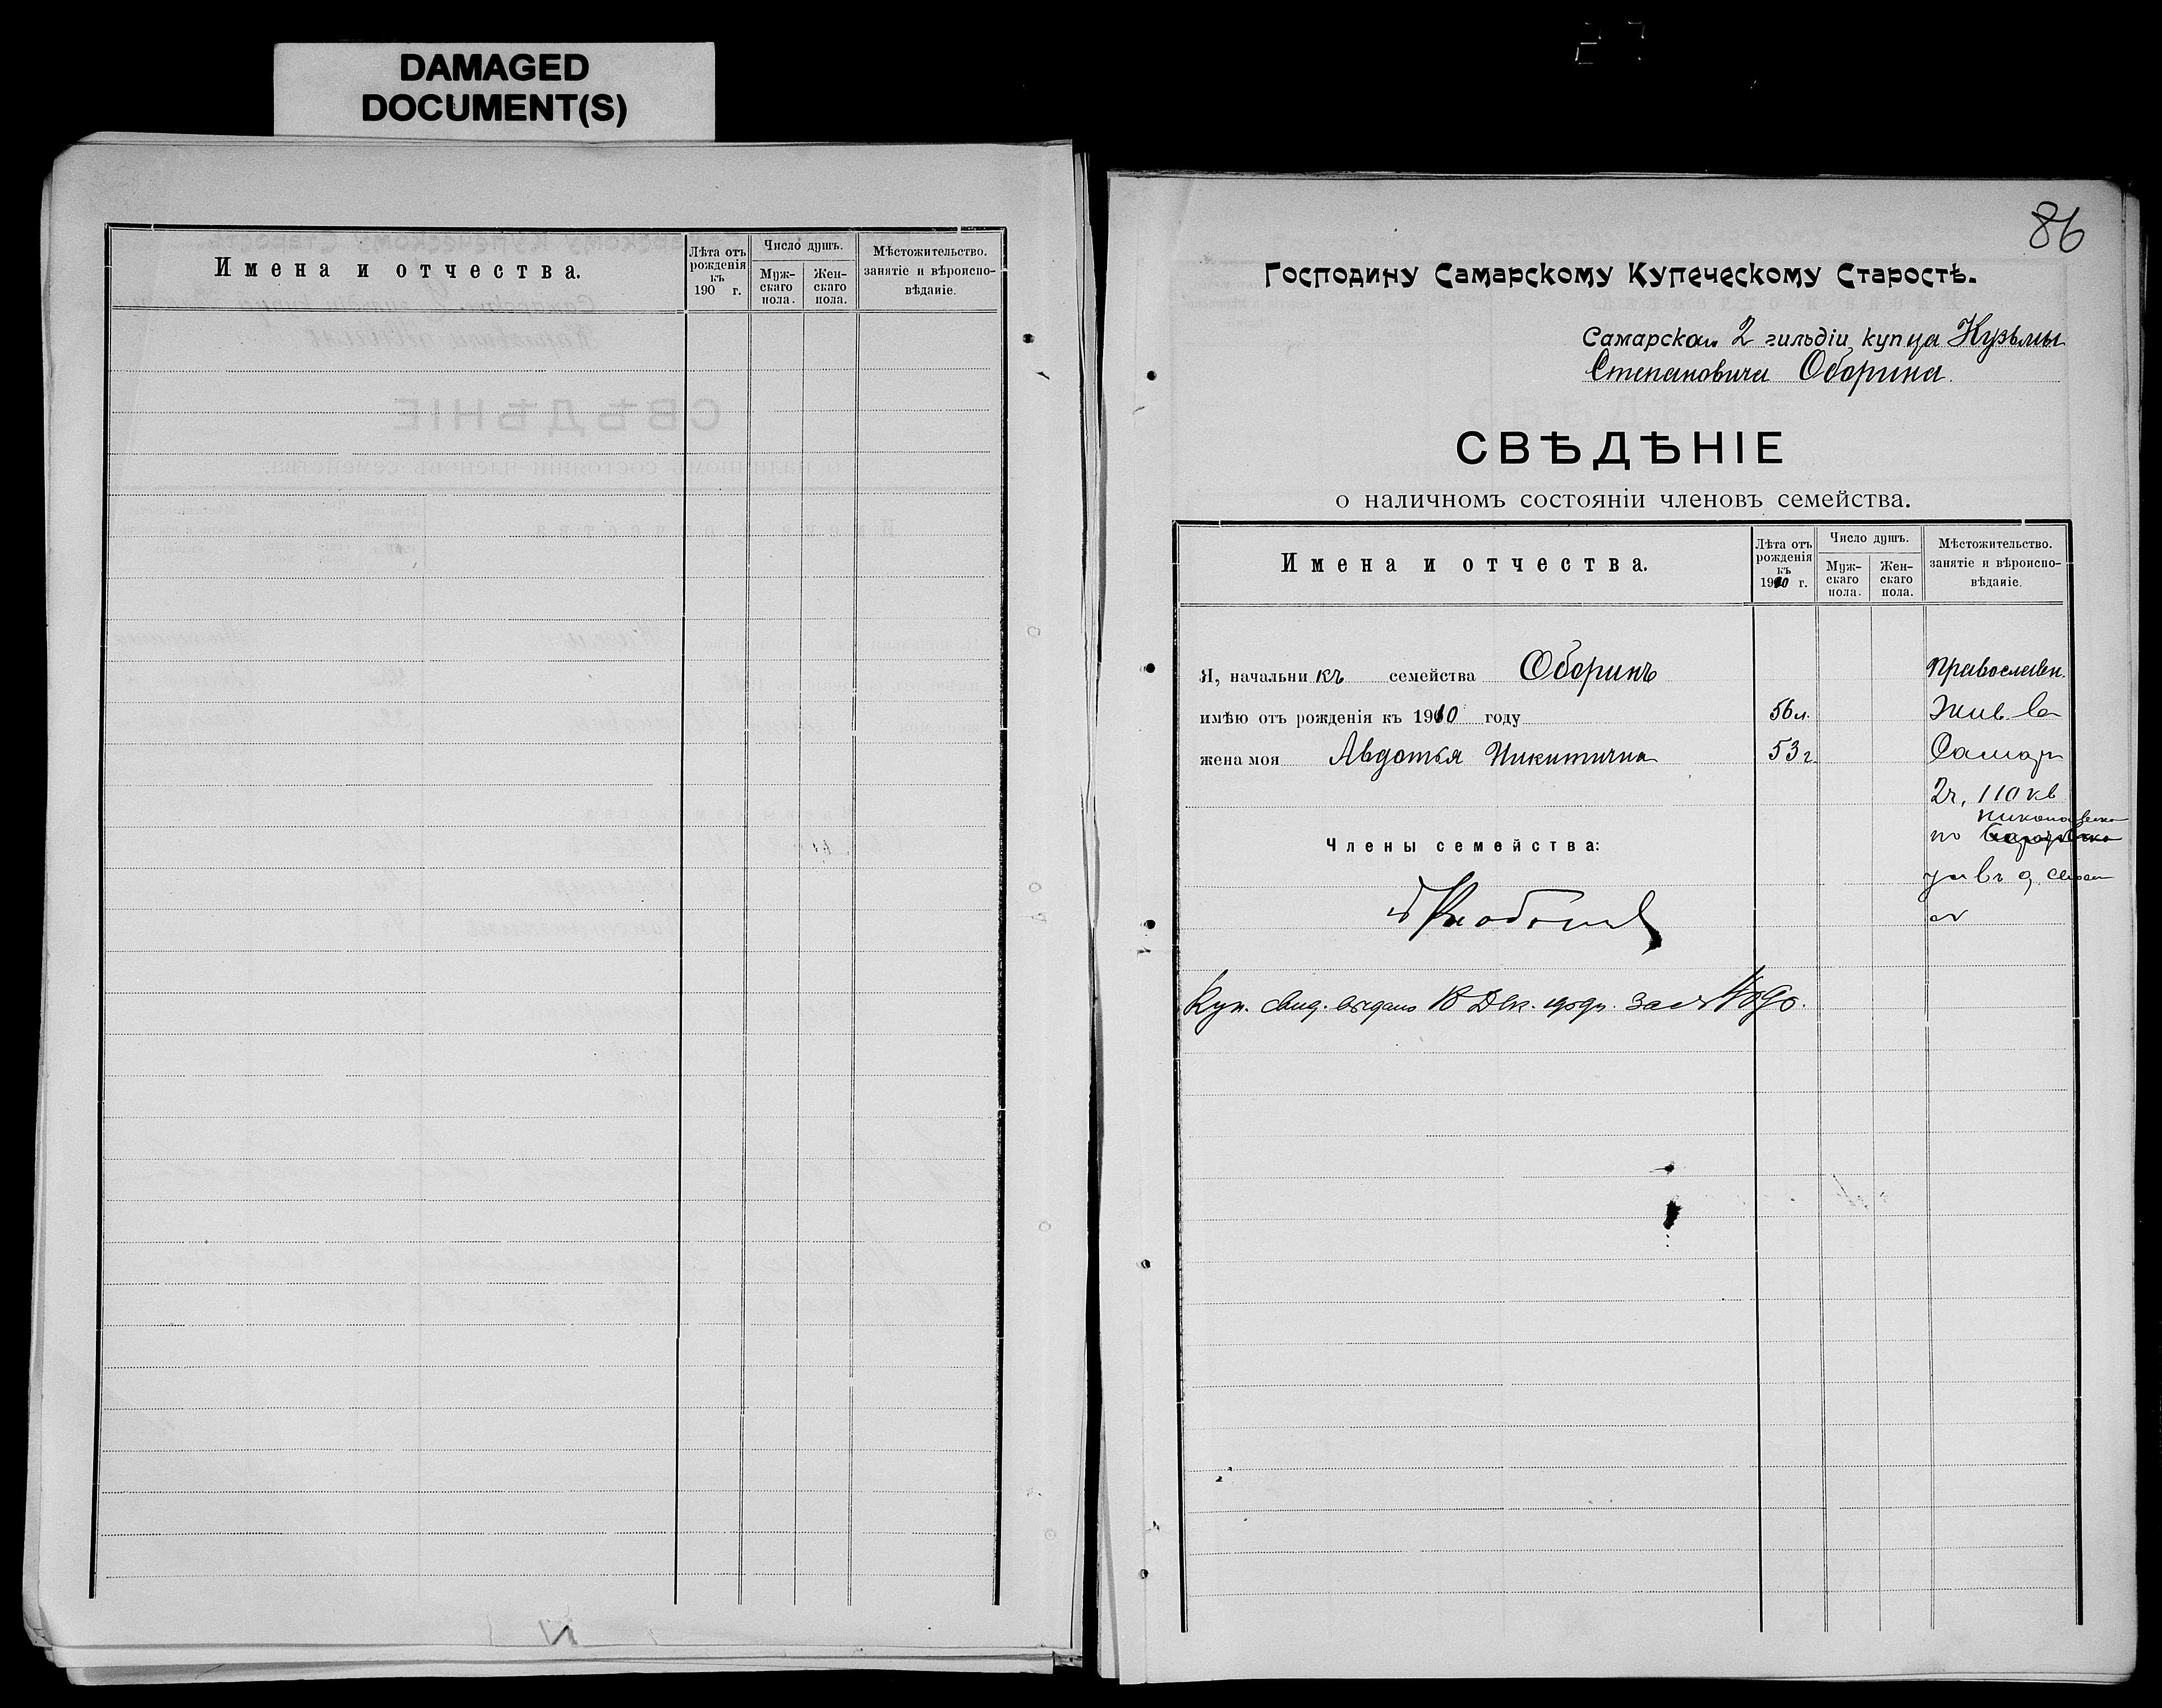 DAMAGED
DOCUMENT(S)
Имена и отчества.
Лѣта отъ рожденія къ 190 г.
Число душъ.
Муж-скаго пола.
Жен-скаго пола.
Мѣстожительство. занятіе и вѣроиспо-вѣданіе.
86
Господину Самарскому Купеческому Старостѣ.
Самарскаго 2 гильдіи купца Кузьмы
Степановича Оборина
СВѢДѢНІЕ
о наличномъ состояніи членовъ семейства.
Имена и отчества.
Лѣта отъ рожденія къ 1910 г.
Число душъ.
Муж-скаго пола.
Жен-скаго пола.
Мѣстожительство. занятіе и вѣроиспо-вѣданіе.
Я, начальникъ семейства Оборинъ Православн.
имѣю отъ рожденія къ 1910 году 56 л. Жив. въ
жена моя Авдотья Никитична 53 г. Самар
2 ч, 110 кв
по
Члены семейства:
Куп. свид. выдано 18 Дек. 1909 г. за №